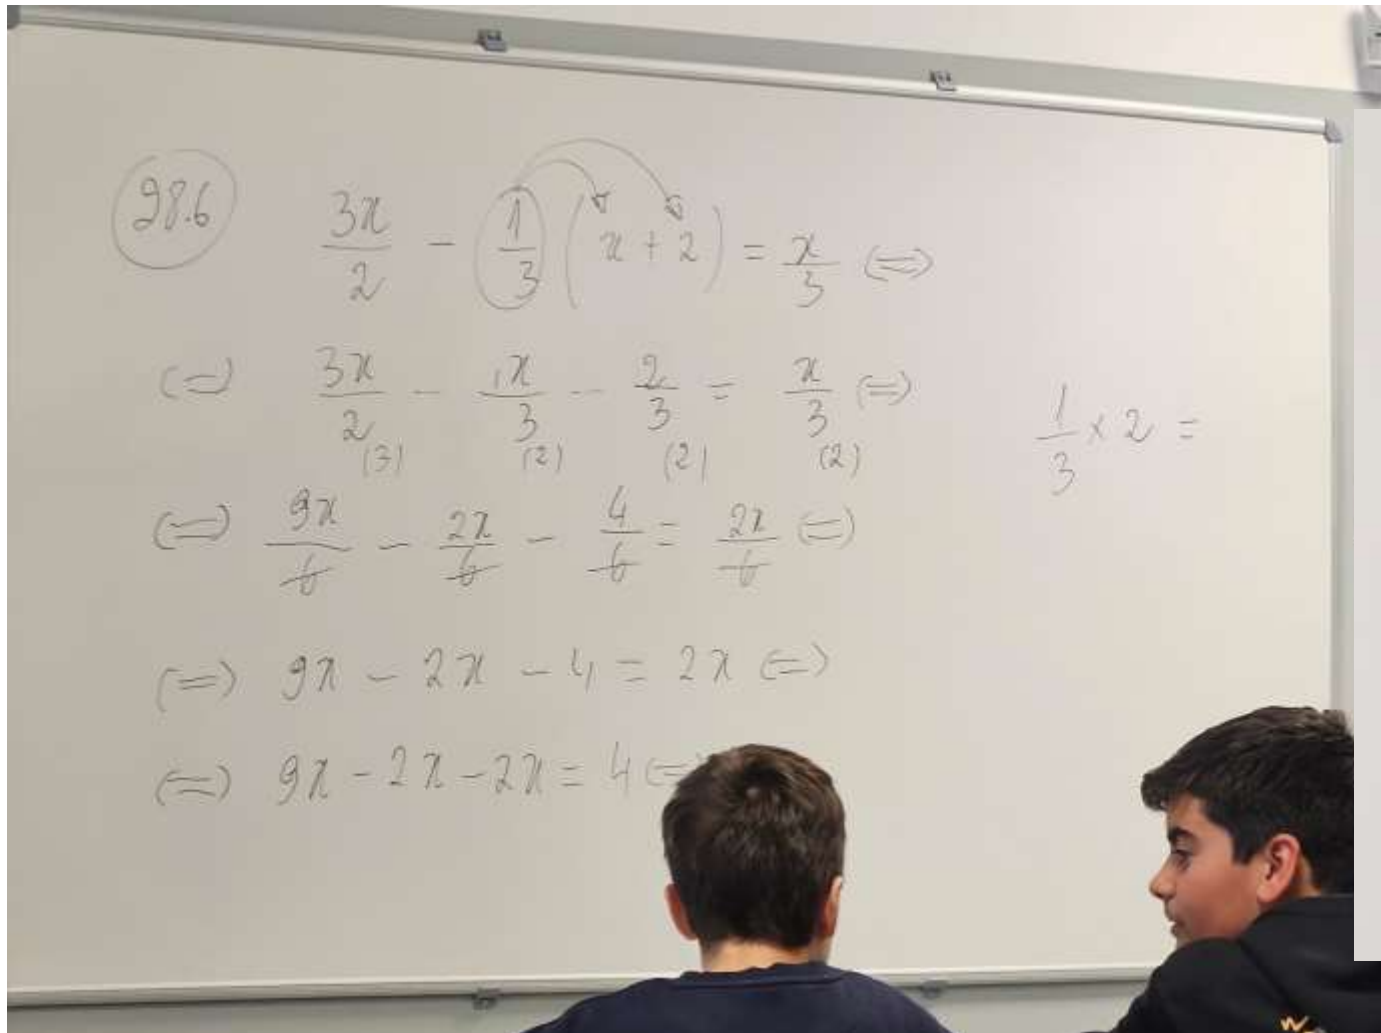 28.6
3x/2 - 1/3 (x + 2) = x/3 (=)
(=) 3x/2 (3) - 1x/3 (2) - 2/3 (2) = x/3 (2) (=)
1/3 × 2 =
(=) 9x/6 - 2x/6 - 4/6 = 2x/6 (=)
(=) 9x - 2x - 4 = 2x (=)
(=) 9x - 2x - 2x = 4 (=)